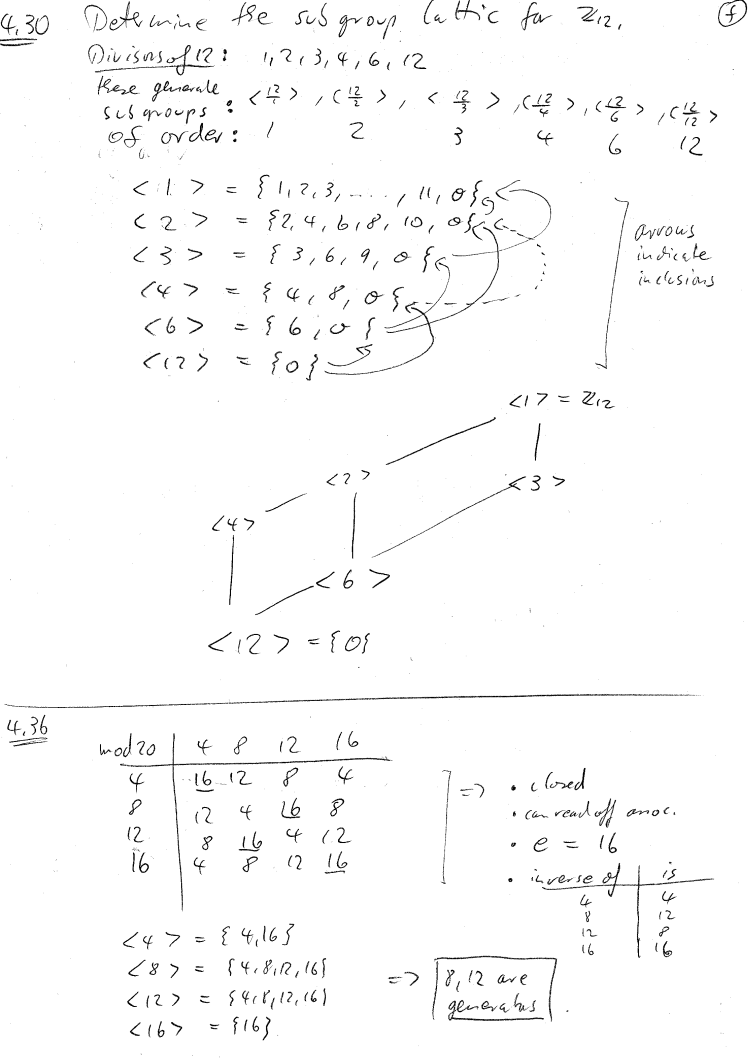 4.30 Determine the subgroup lattic for ℤ12. (f)
Divisors of 12: 1, 2, 3, 4, 6, 12
these generate
subgroups: <12/1>, <12/2>, <12/3>, <12/4>, <12/6>, <12/12>
of order: 1 2 3 4 6 12
<1> = {1, 2, 3, ...., 11, 0}
<2> = {2, 4, 6, 8, 10, 0}
<3> = {3, 6, 9, 0}
<4> = {4, 8, 0}
<6> = {6, 0}
<12> = {0}
arrows
indicate
inclusions
<1> = ℤ12
<2>
<3>
<4>
<6>
<12> = {0}
4.36
mod 20 | 4 8 12 16
4 16 12 8 4
8 12 4 16 8
12 8 16 4 12
16 4 8 12 16
=> • closed
• can read off assoc.
• e = 16
• inverse of | is
4 4
8 12
12 8
16 16
<4> = {4, 16}
<8> = {4, 8, 12, 16}
<12> = {4, 8, 12, 16}
<16> = {16}
=> 8, 12 are
generators.